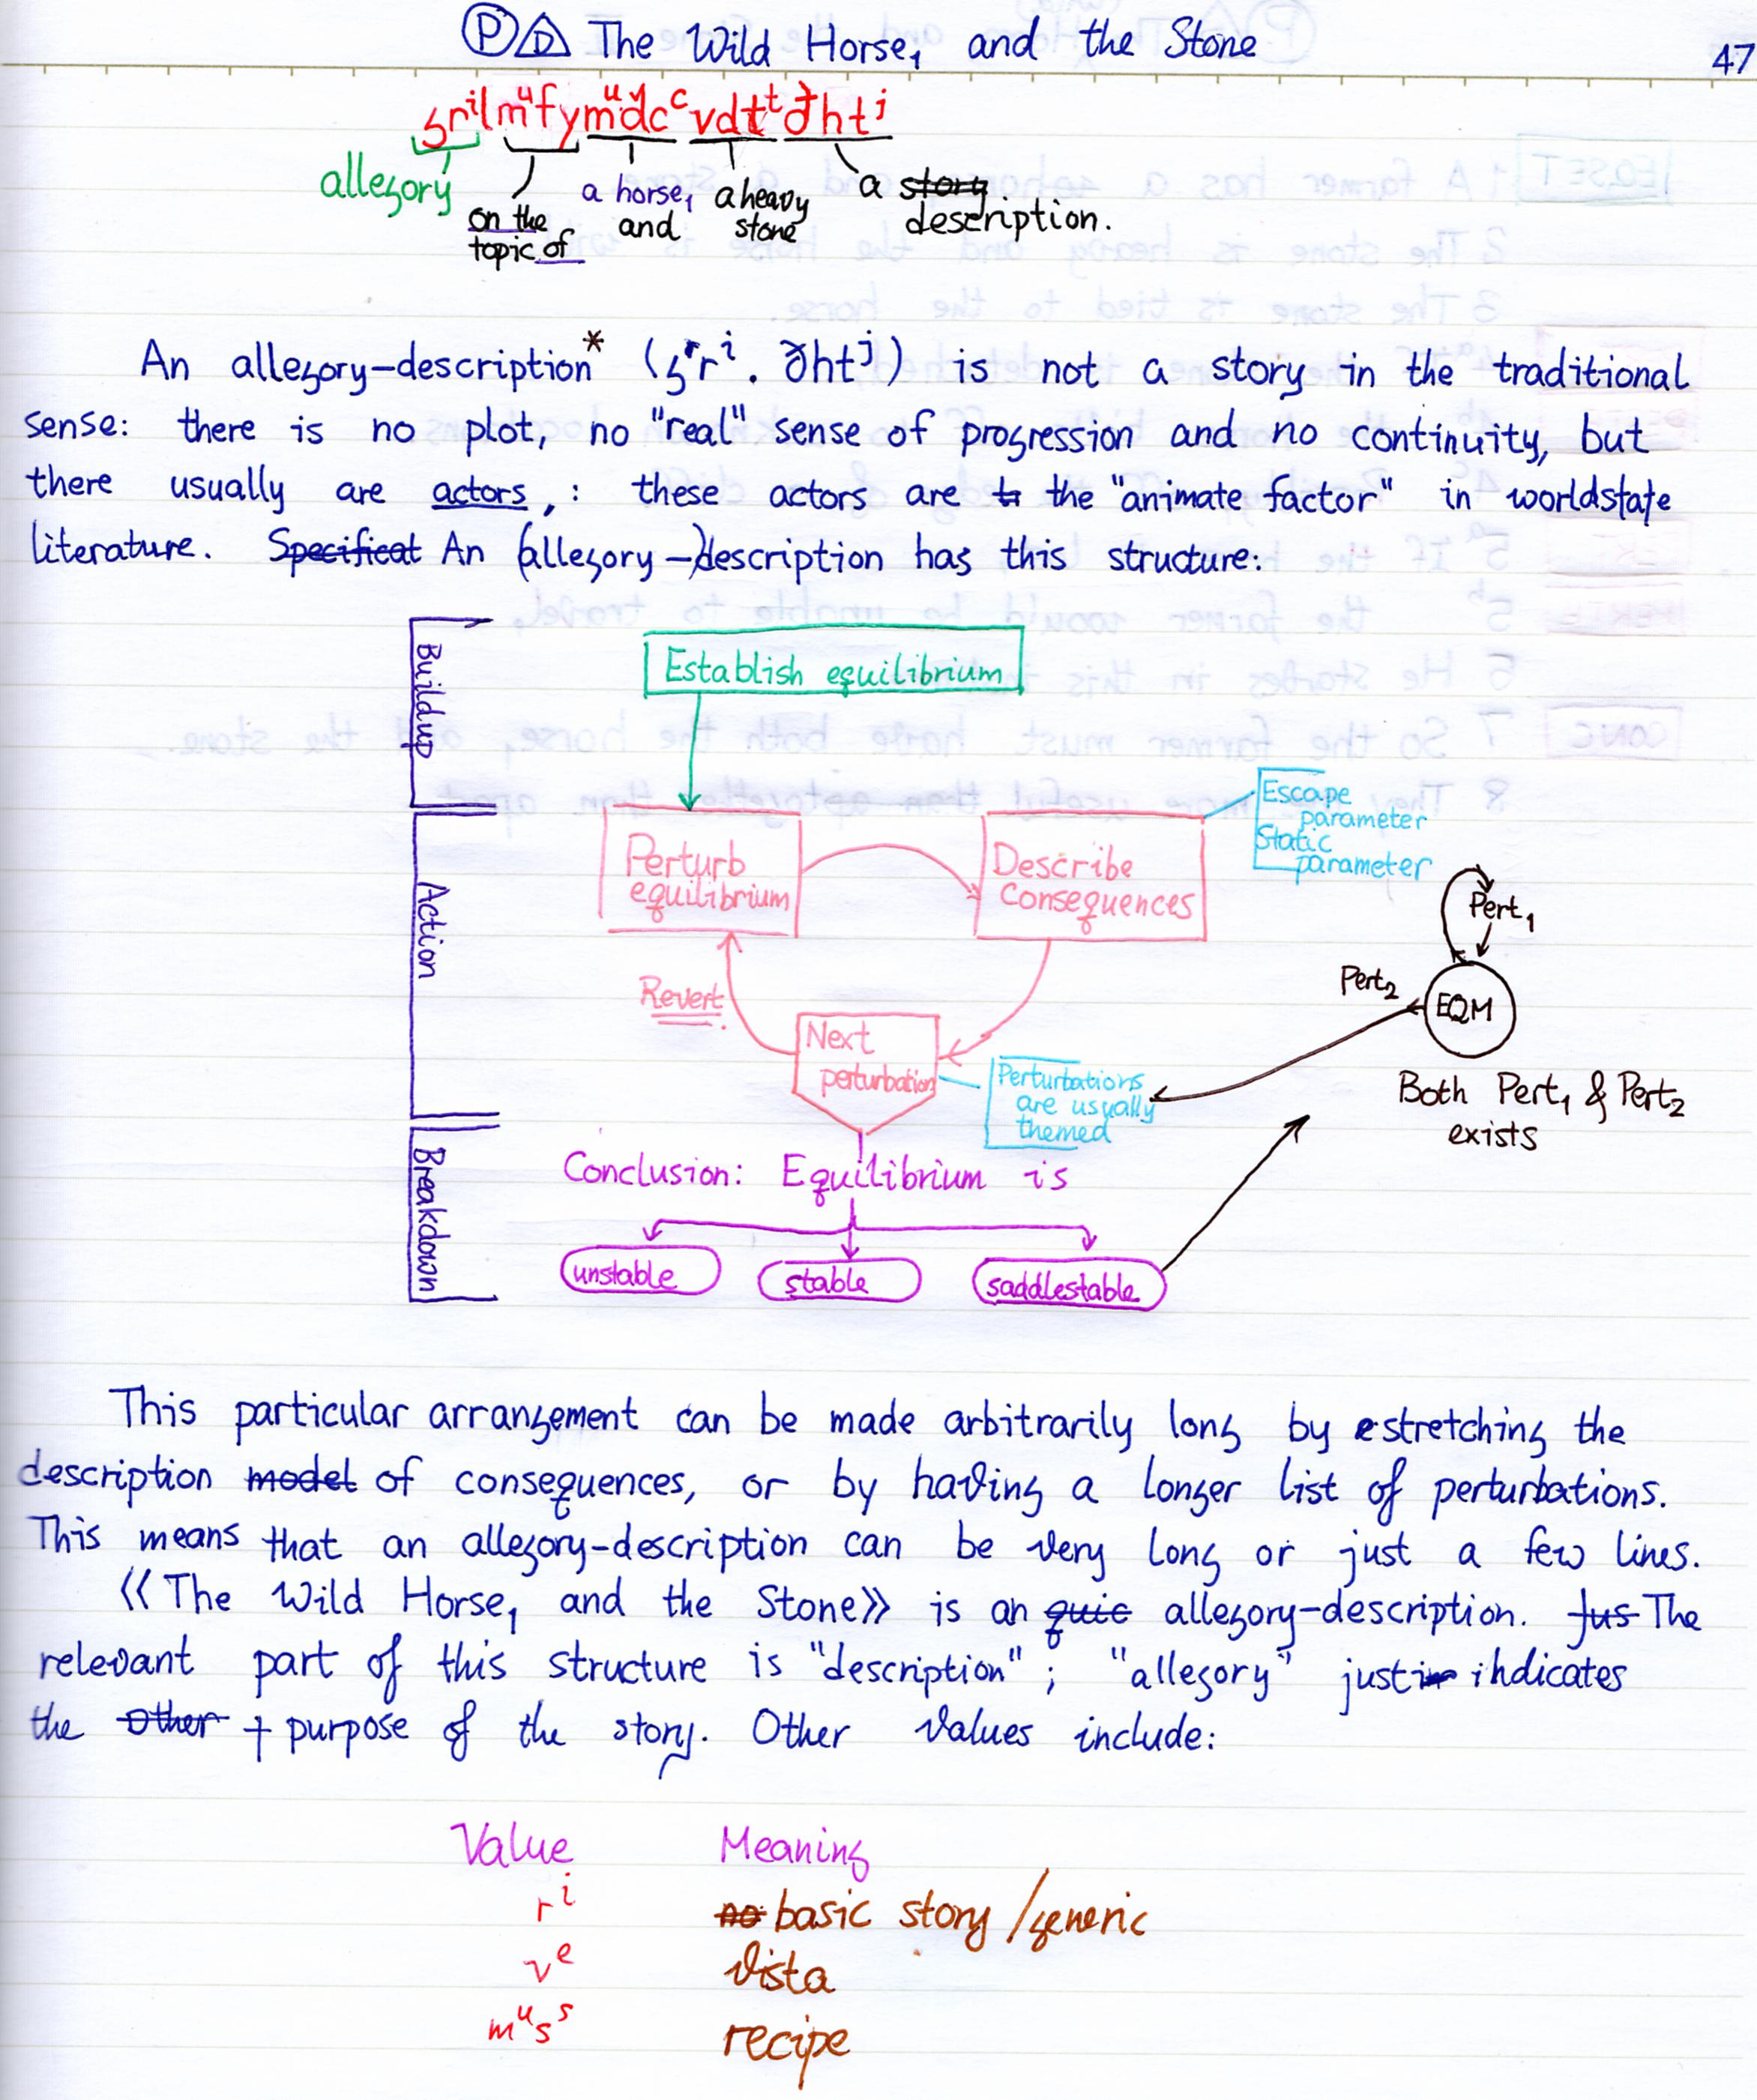 Ⓟ D The Wild Horse, and the Stone
47
allegory
on the topic of
a horse, and
a heavy stone
a story description.
An allegory-description* (ʒʳrⁱ. ðhtʲ) is not a story in the traditional
sense: there is no plot, no "real" sense of progression and no continuity, but
there usually are actors, : these actors are the "animate factor" in worldstate
literature. Specificat An (allegory-)description has this structure:
Buildup
Establish equilibrium
Action
Perturb equilibrium
Describe Consequences
Escape parameter
Static parameter
Revert
Next perturbation
Perturbations are usually themed
Pert₁
Pert₂
EQM
Both Pert₁ & Pert₂ exists
Breakdown
Conclusion: Equilibrium is
unstable
stable
saddlestable
This particular arrangement can be made arbitrarily long by stretching the
description model of consequences, or by having a longer list of perturbations.
This means that an allegory-description can be very long or just a few lines.
《The Wild Horse, and the Stone》 is an quic allegory-description. Jus The
relevant part of this structure is "description"; "allegory" just in indicates
the Other + purpose of the story. Other values include:
Value Meaning
rⁱ no basic story / generic
vᵉ vista
mᵘsˢ recipe